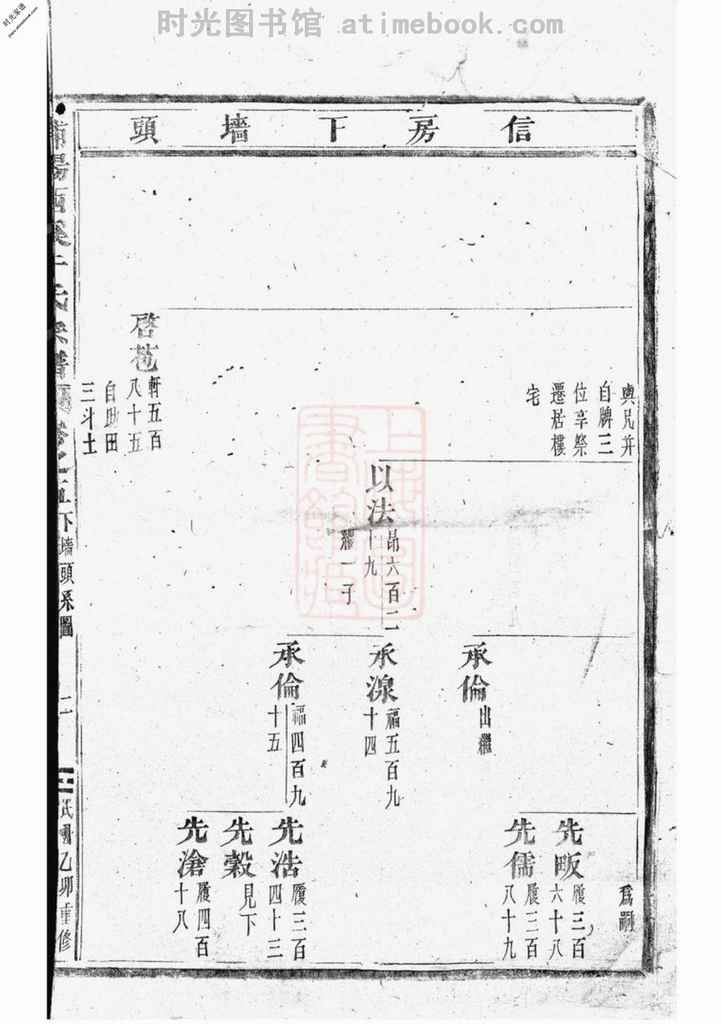 时光图书馆 atimebook.com
时光家谱
www.atimebook.com
信房下墻頭
與兄并
自牌三
位享祭
遷居樓
宅
啓苞
軒五百
八十五
自助田
三斗土
以法
昂六百二
十九
繼一子
為嗣
承倫
出繼
承湶
福五百九
十四
承倫
福四百九
十五
先畈
履三百
六十八
先儒
履三百
八十九
先浩
履三百
四十三
先穀
見下
先滄
履四百
十八
下墻頭系圖
二
民國乙卯重修